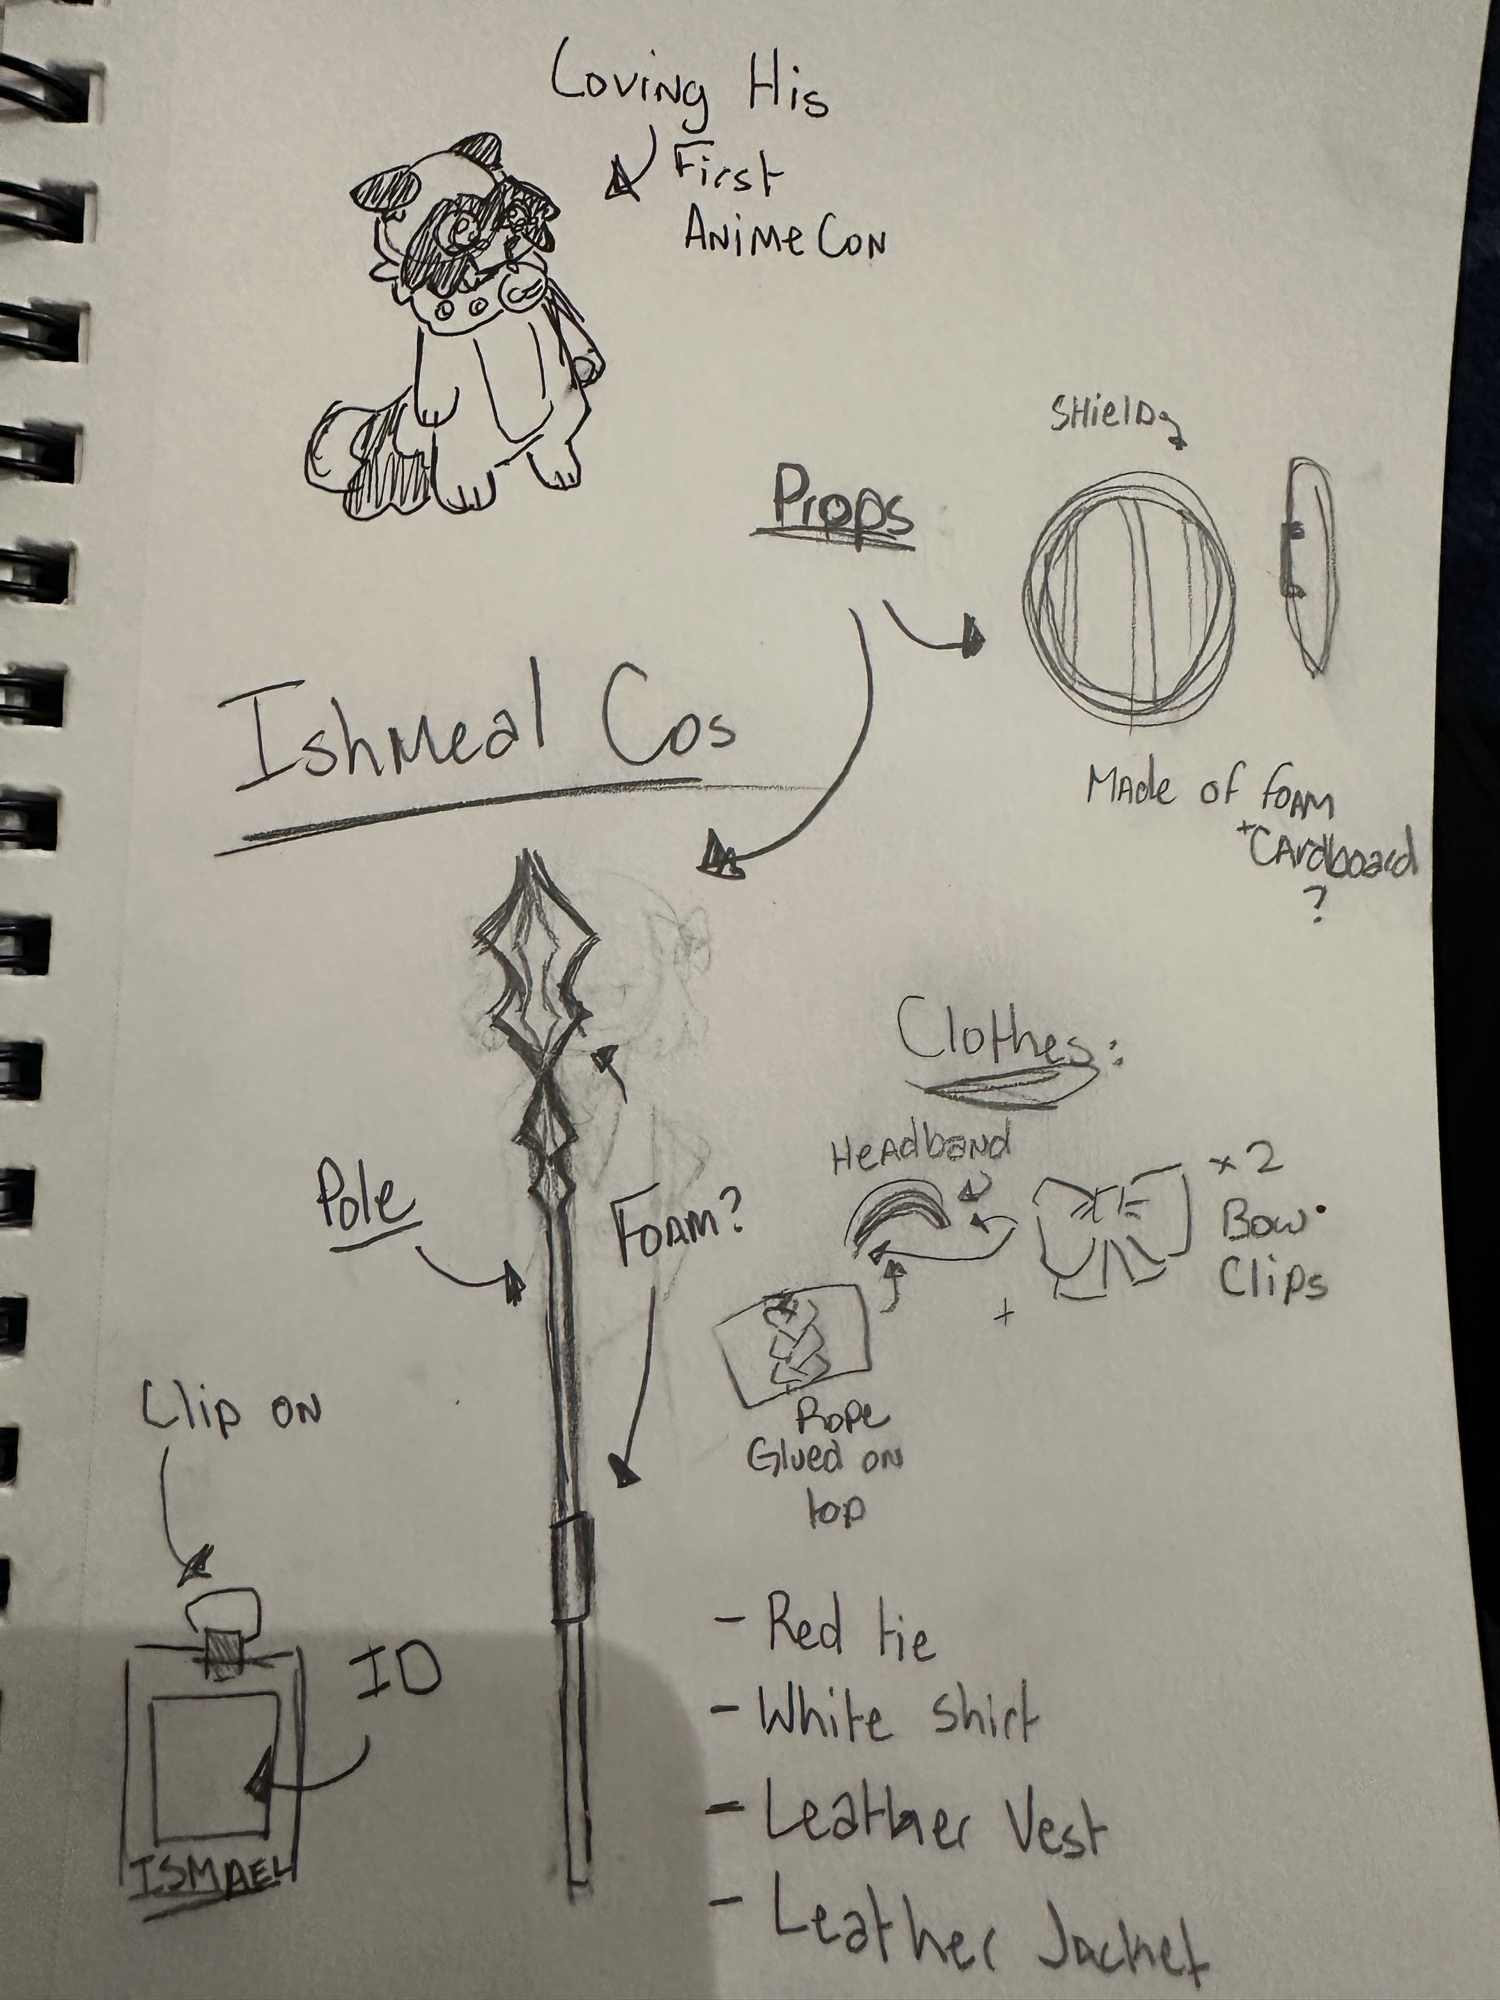 Loving His
First
Anime Con
Shield
Props
Made of foam
+ Cardboard
?
Ishmeal Cos
Clothes:
Headband
x2
Bow
Clips
Pole
Foam?
+
Rope
Glued on
top
Clip on
ID
ISMAEL
- Red tie
- White shirt
- Leather Vest
- Leather Jacket